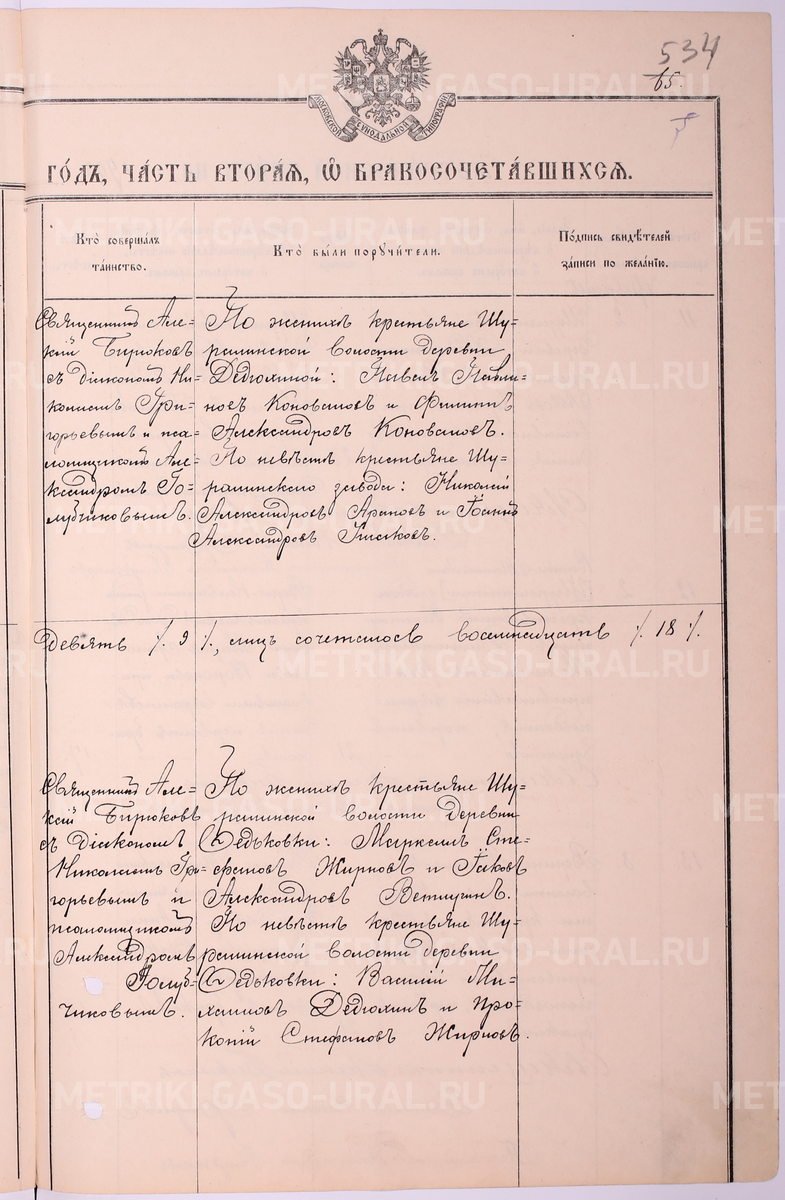 534
65.
МОСКОВСКОЙ СѴНОДАЛЬНОЙ ТИПОГРАФІИ
ГО́ДЪ, ЧА́СТЬ ВТОРА́Я, Ѡ҆ БРАКОСОЧЕТА́ВШИХСЯ.
Кто̀ соверша́лъ
та́инство.
Кто̀ бы́ли порꙋчи́тели.
По́дпись свидѣ́телей
за́писи по жела́нію.
Священникъ Але-
ксій Бирюковъ
съ діакономъ Ни-
колаемъ Гри-
горьевымъ и пса-
ломщикомъ Але-
ксандромъ Го-
лубчиковымъ.
По женихѣ крестьяне Шу-
ралинской волости деревни
Дедюхиной: Павелъ Павли-
новъ Коноваловъ и Филиппъ
Александровъ Коноваловъ.
По невѣстѣ крестьяне Шу-
ралинскаго завода: Николай
Александровъ Араповъ и Іоаннъ
Александровъ
Девять /. 9 /., лицъ сочеталось восемнадцать /. 18 /.
Священникъ Але-
ксій Бирюковъ
съ Діакономъ
Николаемъ Гри-
горьевымъ и
псаломщикомъ
Александромъ
Голуб-
чиковымъ.
По женихѣ крестьяне Шу-
ралинской волости деревни
Федьковки: Маркелъ Сте-
фановъ Жирновъ и Іаковъ
Александровъ Ветлугинъ.
По невѣстѣ крестьяне Шу-
ралинской волости деревни
Федьковки: Василій Ми-
хаиловъ Дедюхинъ и Про-
копій Стефановъ Жирновъ.
METRIKI.GASO-URAL.RU